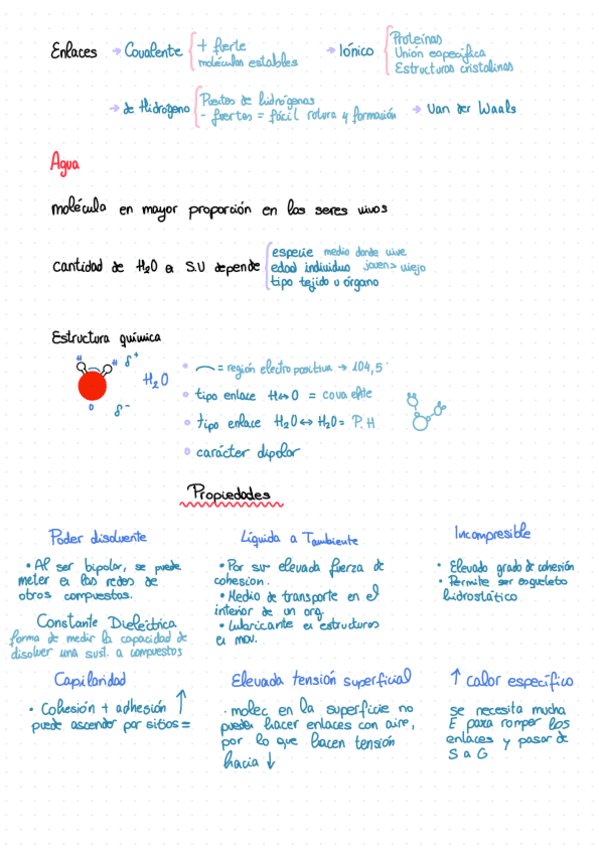 Enlaces → Covalente + fuerte → Iónico Proteínas
moléculas estables Unión específica
Estructuras cristalinas
→ de Hidrógeno Puentes de hidrógenos → Van der Waals
- fuertes = fácil rotura y formación
Agua
molécula en mayor proporción en los seres vivos
cantidad de H₂O en S.V depende especie medio donde vive
edad individuo joven > viejo
tipo tejido u órgano
Estructura química
H H δ⁺
H₂O
O δ⁻
= región electropositiva → 104,5°
tipo enlace H↔O = covalente
tipo enlace H₂O↔H₂O = P.H
carácter dipolar
Propiedades
Poder disolvente
• Al ser bipolar, se puede
meter en las redes de
otros compuestos.
Constante Dieléctrica
forma de medir la capacidad de
disolver una sust. a compuestos
Líquida a Tambiente
• Por su elevada fuerza de
cohesion.
• Medio de transporte en el
interior de un org.
• Lubricante en estructuras
en mov.
Incompresible
• Elevado grado de cohesión
• Permite ser esqueleto
hidrostático
Capilaridad
• Cohesión + adhesión ↑
puede ascender por sitios =
Elevada tensión superficial
· molec en la superficie no
pueden hacer enlaces con aire,
por lo que hacen tensión
hacia ↓
↑ calor específico
se necesita mucha
E para romper los
enlaces y pasar de
S a G